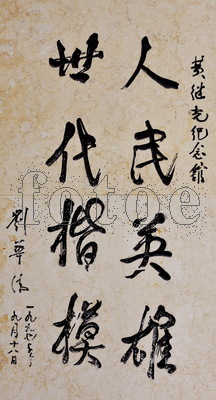 黄继光纪念館
人民英雄
世代楷模
劉華清
一九九七年
九月十八日
fotoe